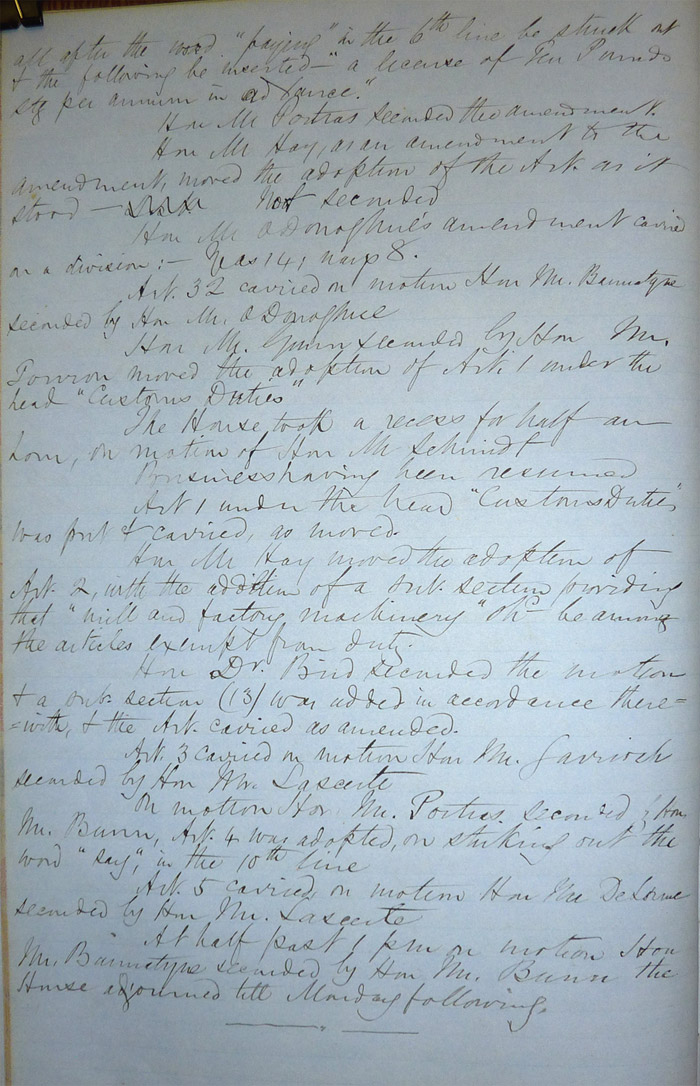 all after the word "paying" in the 6th line be struck out
& the following be inserted - "a license of Ten Pounds
stg per annum in advance."
Hon Mr Poitras seconded the amendment.
Hon Mr Hay, as an amendment to the
amendment, moved the adoption of the Art. as it
stood - Not seconded
Hon Mr O'Donoghue's amendment carried
on a division :- Yeas 14; nays 8.
Art. 32 carried on motion Hon Mr. Bannatyne
seconded by Hon Mr. O'Donoghue
Hon Mr. Gunn seconded by Hon Mr.
Touron moved the adoption of Art. 1 under the
head "Customs Duties"
The House took a recess for half an
hour, on motion of Hon Mr Schmidt
Business having been resumed
Art 1 under the head "Customs Duties"
was put & carried, as moved.
Hon Mr Hay moved the adoption of
Art. 2, with the addition of a sub. section providing
that "mill and factory machinery" shd be among
the articles exempt from duty.
Hon Dr. Bird seconded the motion
& a sub. section (13) was added in accordance there=
=with, & the Art. carried as amended.
Art. 3 carried on motion Hon Mr. Garrioch
seconded by Hon Mr. Lascerte
On motion Hon Mr. Poitras seconded by Hon
Mr. Bunn, Art. 4 was adopted, on striking out the
word "say", in the 10th line
Art. 5 carried on motion Hon Mr DeLorme
seconded by Hon Mr. Lascerte
At half past 1 pm on motion Hon
Mr. Bannatyne seconded by Hon Mr. Bunn the
House adjourned till Monday following.